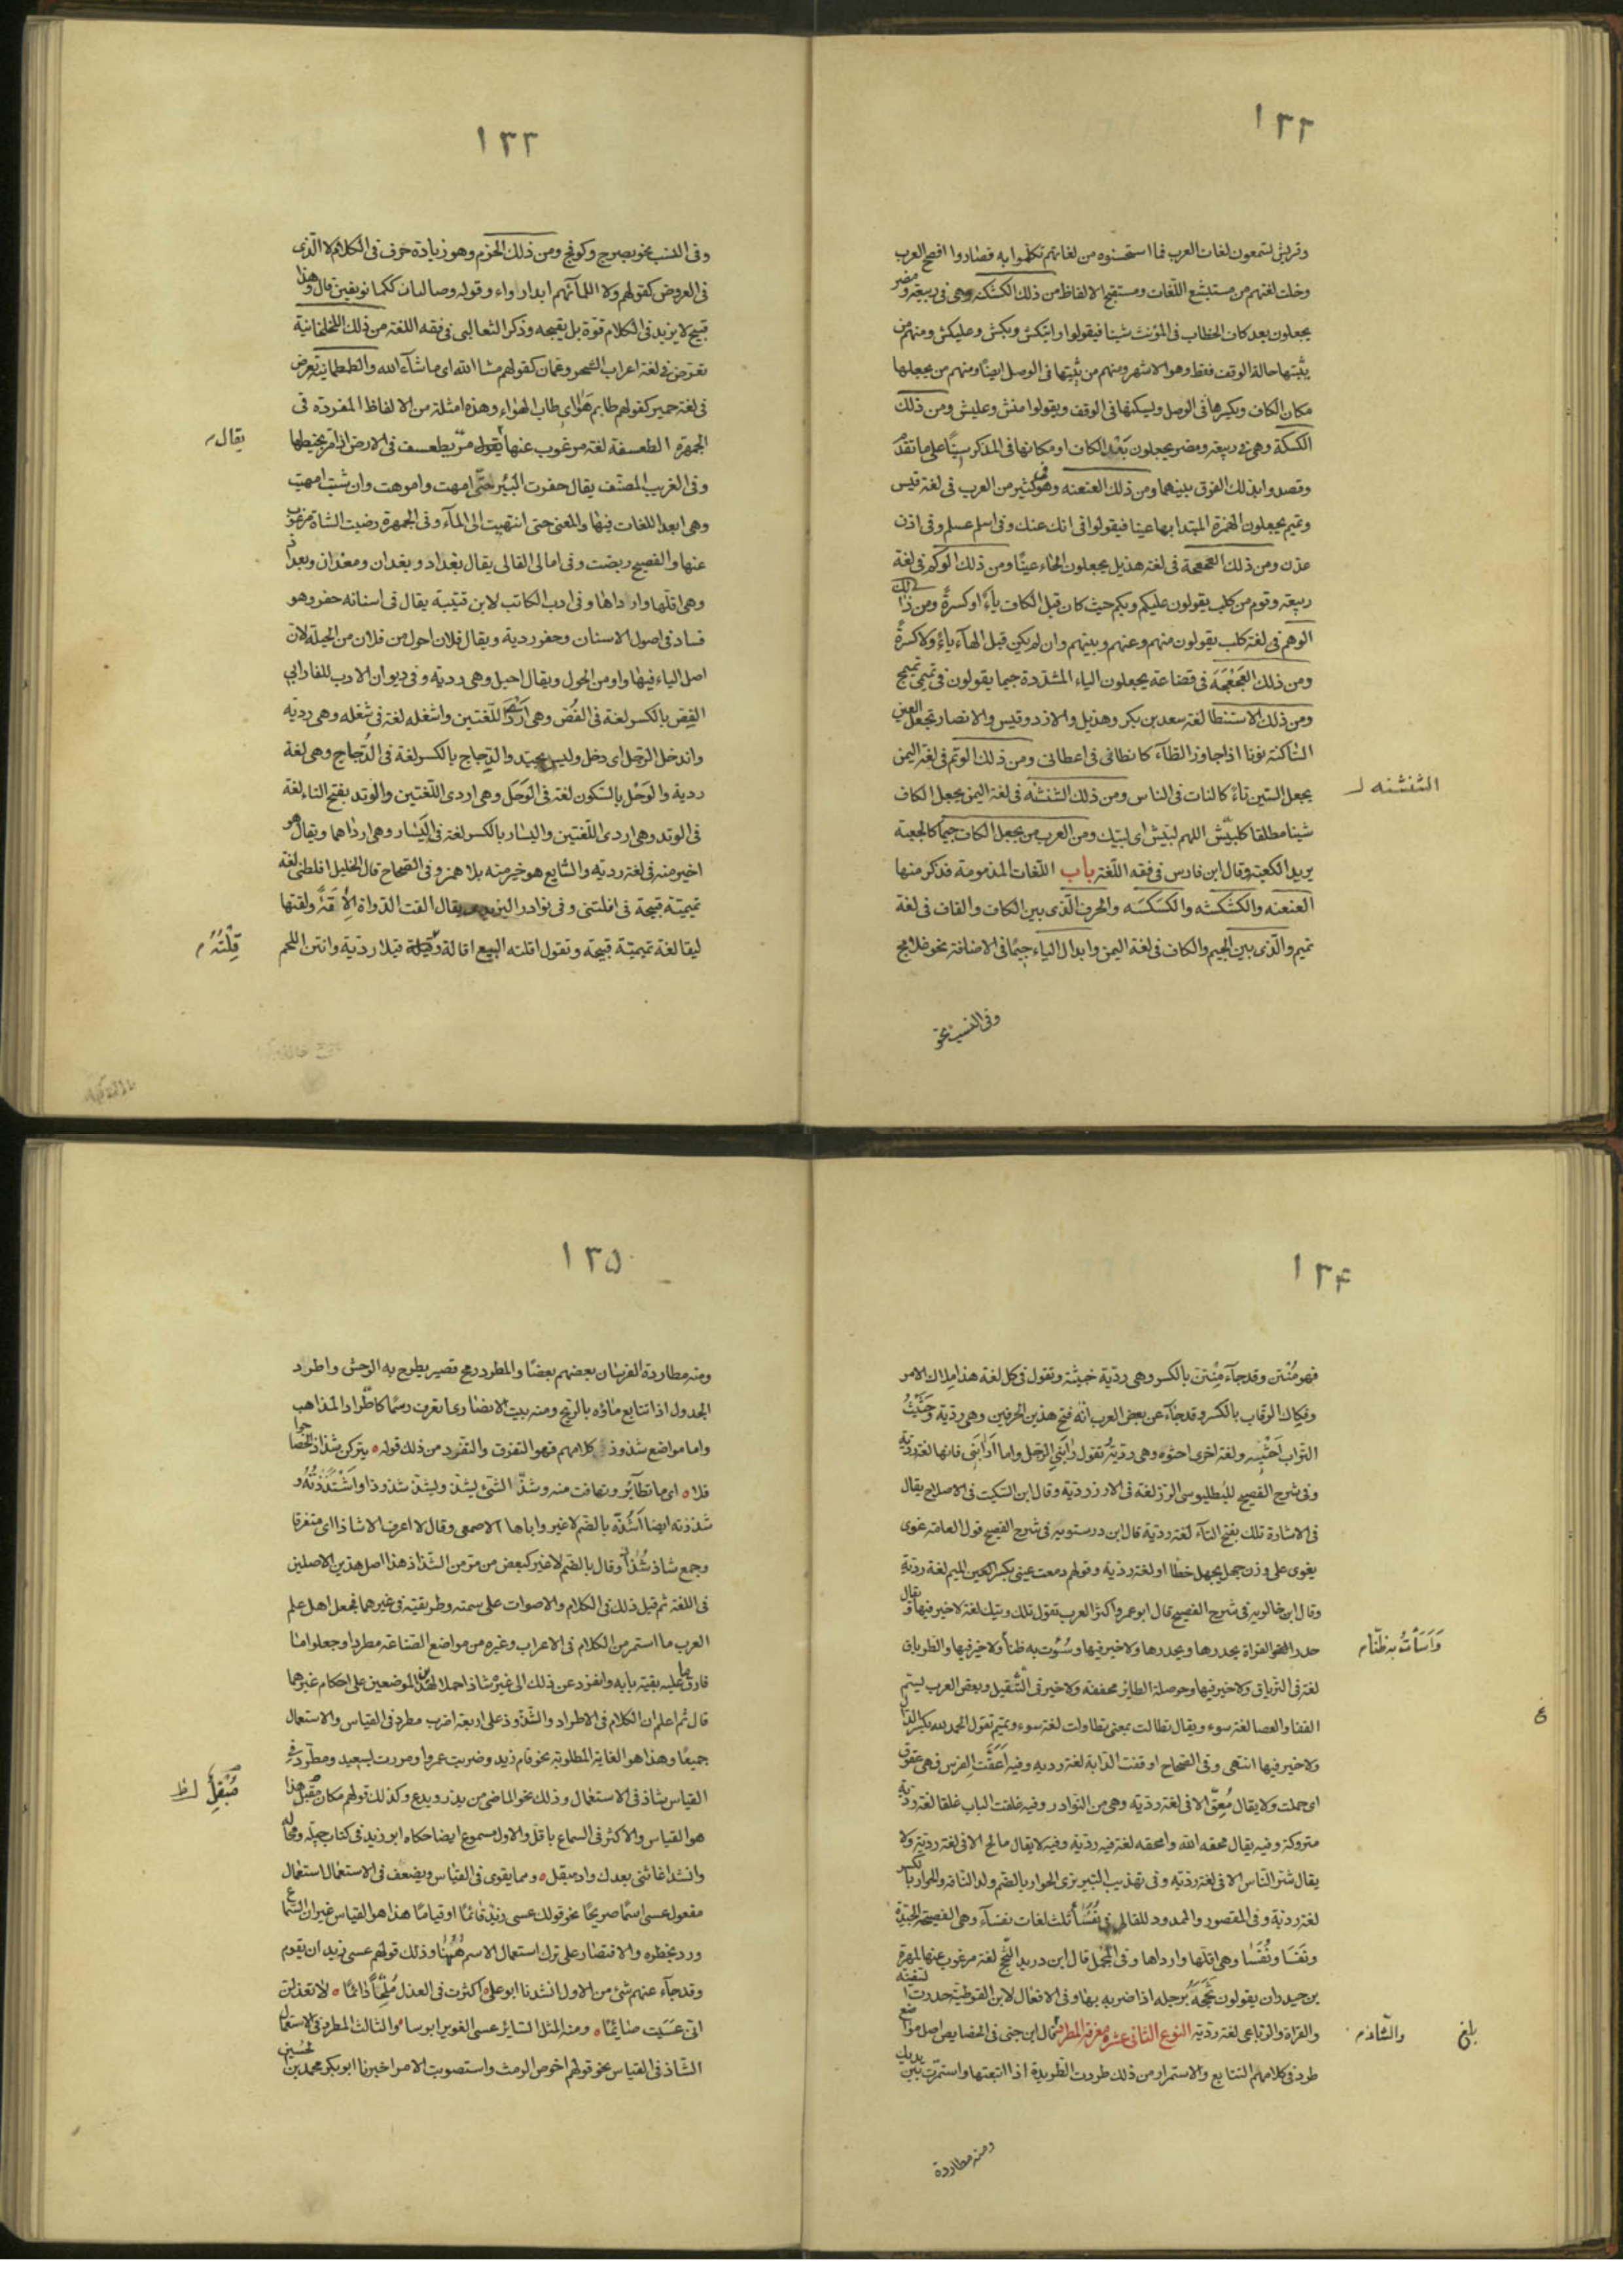 ١٣٢
وقريش يسمعون لغات العرب فما استحسنوه من لغاتهم تكلموا به فصاروا افصح العرب
وخلت لغتهم من مستبشع اللغات ومستقبح الالفاظ من ذلك الكشكشة وهى فى ربيعة ومضر
يجعلون بعد كاف الخطاب فى المؤنث شينا فيقولوا رايتكش وبكش وعليكش ومنهم من
يثبتها حالة الوقف فقط وهو الاشهر ومنهم من يثبتها فى الوصل ايضًا ومنهم من يجعلها
مكان الكاف ويكسرها فى الوصل ويسكنها فى الوقف ويقولوا منش وعليش ومن ذلك
الكسكة وهى فى ربيعة ومضر يجعلون بَعْد الكاف او مكانها فى المذكر سينًا على ما تقدّم
وقصدوا بذلك الفرق بينهما ومن ذلك العنعنه وهو فى كثير من العرب فى لغة قيس
وتميم يجعلون الهمزة المبتدا بها عينا فيقولوا فى انك عنك وفى اسلم عسلم وفى اذن
عذن ومن ذلك الفحفحة فى لغة هذيل يجعلون الحاء عينًا ومن ذلك الوكم فى لغة
ربيعة وقوم من كلب يقولون عليكم وبكم حيث كان قبل الكاف ياءً او كسرةً ومن ذلك
الوهم فى لغة كلب يقولون منهم وعنهم وبينهم وان لم يكن قبل الهآء ياءً ولا كسرةً
ومن ذلك العَجْعَجَة فى قضاعة يجعلون الياء المشدّدة جيما يقولون فى تميمى تميمج
ومن ذلك الاستنطا لغة سعد بن بكر وهذيل والازد وقيس والانصار تجعل العين
الساكنة نونا اذا جاوز الظآء كانطانى فى اعطانى ومن ذلك الوتم فى لغة اليمن
يجعل السين تاءً كالنات فى الناس ومن ذلك الشنشنه فى لغة اليمن يجعل الكاف
الشنشنه
شينا مطلقا كلبيّش اللهم لبيّش اى لبيك ومن العرب من يجعل الكاف جيمًا كالجعبة
يريد الكعبة وقال ابن فارس فى فقه اللّغة باب اللّغات المذمومة فذكر منها
العنعنه والكشكشه والكسكسه والحرف الّذى بين الكاف والقاف فى لغة
تميم والّذى بين الجيم والكاف فى لغة اليمن وابدال الياء جيمًا فى الاضافة نحو غلامج
وفى النسب نحو
١٣٣
وفى النسب نحو بصرج وكوفج ومن ذلك الخزم وهو زيادة حرف فى الكلام لا الّذى
فى العروض كقولهم ولا اللما بهم ابدا دواء وقوله وصاليات ككما يؤثفين قال وهذا
قبيح لا يزيد فى الكلام قوّة بل يقبحه وذكر الثعالبى فى فقه اللغة من ذلك اللخلخانية
تعرض فى لغة اعراب الشحر وعمان كقولهم مشا الله اى ما شآء الله والطمطمانية تعرض
فى لغة حمير كقولهم طاب امهواء اى طاب الهواء وهذه امثلة من الالفاظ المفردة فى
الجمهرة الطعسفة لغة مرغوب عنها يقول مرّ يطعسف فى الارض اذا مرّ يخبطها
يقال
وفى الغريب المصنّف يقال حفرت البئر حتّى امهت واموهت وان شئت امهيت
وهى ابعد اللغات فيها والمعنى حتى انتهيت الى المآء وفى الجمهرة رضيت الشاة مرغوب
عنها والفصيح ربضت وفى امالى القالى يقال بغداد وبغدان ومغدان وبغداذ
وهى اقلّها وارداها وفى ادب الكاتب لابن قتيبة يقال فى اسنانه حفر وهو
فساد فى اصول الاسنان وحفر ردية ويقال فلان احول من فلان من الحيلة لان
اصل الياء فيها واو من الحول ويقال احيل وهى ردية وفى ديوان الادب للفارابى
الفِصّ بالكسر لغة فى الفُصّ وهى اردأ اللّغتين واشغله لغة فى شغله وهى ردية
واندخل الرجل اى دخل وليس بجيّد والدِجاج بالكسر لغة فى الدُجاج وهى لغة
ردية والوَحْل بالسّكون لغة فى الوَحَل وهى اردى اللّغتين والوتد بفتح التاء لغة
فى الوتد وهى اردى اللّغتين واليسار بالكسر لغة فى اليَسار وهى ارداهما ويقال هو
اخير منه فى لغة ردية والشايع هو خير منه بلا همز وفى الصّحاح قال الخليل افلطنى لغة
تميميّة قبيحة فى افلتنى وفى نوادر اليزيدى يقال القت الدّواة الاقة ولقتها
ليقا لغة تميميّة قبيحة وتقول اقلته البيع اقالة وقيلة قيلا رديّة وانتن اللحم
قِلْتُهُ
١٣٤
فهو مُنْتن وقد جآء مِنْتن بالكسر وهى رديّة خبيثة وتقول فى كل لغة هذا ملاك الامر
وفِكاك الرقاب بالكسر وقد جآء عن بعض العرب انّه فتح هذين الحرفين وهى رديّة وحَثَيْتُ
التراب اَحْثيه ولغة اخرى احثوه وهى رديّة تقول رابنى الرّجل واما ارابنى فانها لغة رديّة
وفى شرح الفصيح للبطليوسى الرّز لغة فى الارز رديّة وقال ابن السّكيت فى الاصلاح يقال
فى الاشارة تلك بفتح التآء لغة رديّة قال ابن درستويه فى شرح الفصيح قول العامة غوى
يغوى على وزن جهل يجهل خطا او لغة رديّة وقولهم دمعت عينى بكسر العين الميم لغة رديّة
وقال ابن خالويه فى شرح الفصيح قال ابو عمرو اكثر العرب تقول تلك وتيك لغة لاخير فيها ويقال
حدر القو القراة يحدرها ويحدرها ولا خير فيها وسُؤت به ظنا ولا خير فيها والطرياق
وَاَسَأتُ به ظنّا
لغة فى الترياق ولا خير فيها وحوصلة الطائر مخففة ولا خير فى التّثقيل وبعض العرب ليتم
القفا والعصا لغة سوء ويقال تطالت بمعنى تطاولت لغة سوء وتميم تقول الحمد لله بكسر الدال
ولا خير فيها انتهى وفى الصّحاح اوقفت الدّابة لغة ردية وفيه اَعَقَّتِ الفرس فهى عقوق
اى حملت ولا يقال مُعِقّ الا فى لغة رديّة وهى من النّوادر وفيه غلقت الباب غلقا لغة رديّة
متروكة وفيه يقال محقه الله وامحقه لغة فيه رديّة وفيه لا يقال مالح الا فى لغة رديّة ولا
يقال شرّ النّاس الا فى لغة رديّة وفى تهذيب التبريزى الحوار بالضّم ولد النّاقة والحوار بالكسر
لغة رديّة وفى المقصور والممدود للقالى فى نُفَسَاء ثلث لغات نفسآء وهى الفصيحة الجيّدة
ونَفَسَا ونُفَسَا وهى اقلّها وارداها وفى المجمل قال ابن دريد النَّجَخ لغة مرغوب عنها لمهرة
بن حيدان يقولون برجله اذا ضربه بها وفى الافعال لابن القوطية حدرت السفينة
والقراة والرّباعى لغة رديّة النوع الثانى عشر معرفة المطرد قال ابن جنى فى الخصايص اصل مواضع
والشّاذ
بلغ
طرد فى كلامهم التتابع والاستمرار من ذلك طردت الطّريدة اذا اتبعتها واستمرّت بين يديك
ومنه مطاردة
١٣٥
ومنه مطاردة الفرسان بعضهم بعضًا والمطرد رمح قصير يطرد به الوحش واطرد
الجدول اذا تتابع ماؤه بالريح ومنه بيت الانصارى اتعرف رسمًا كاطّراد المذاهب
واما مواضع شذوذ كلامهم فهو التفرّق والتفرّد من ذلك قوله يتركن شذاذ الحصا جوا
فلا اى ما تطآير وتهافت منه وشذّ الشئ يشذّ ويشذّ شذوذا واَشْذَذْتُهُ و
شذذته ايضا اَشُذّه بالضّم لا غير واباها الاصمعى وقال لا اعرف الا شاذا اى متفرقا
وجمع شاذ شُذّاذ وقال بالضّم لا غير كبعض من مر من الشّذاذ هذا اصل هذين الاصلين
فى اللغة ثم قيل ذلك فى الكلام والاصوات على سمته وطريقته فى غيرهما فجعل اهل علم
العرب ما استمر من الكلام فى الاعراب وغيره من مواضع الصّناعة مطردا وجعلوا ما
فارق ما عليه بقيّة بابه وانفرد عن ذلك الى غيره شاذا حملا لهذين الموضعين على احكام غيرهما
قال ثم اعلم ان الكلام فى الاطراد والشّذوذ على اربعة اضرب مطرد فى القياس والاستعمال
جميعًا وهذا هو الغاية المطلوبة نحو قام زيد وضربت عمروا ومررت بسعيد ومطّرد فى
القياس شاذ فى الاستعمال وذلك نحو الماضى من يذر ويدع وكذلك قولهم مكان مبقل هذا
مُبْقِلٌ
هو القياس والاكثر فى السماع باقل والاول مسموع ايضا حكاه ابو زيد فى كتاب حيله ومحاله
وانشد اعاشنى بعدك واد مبقل ومما يقوى فى القياس ويضعف فى الاستعمال استعمال
مفعول عسى اسمًا صريحًا نحو قولك عسى زيد قائمًا او قيامًا هذا هو القياس غير ان السّماع
ورد بخطره والاقتصار على ترك استعمال الاسم هٰهُنا وذلك قولهم عسى زيد ان يقوم
وقد جآء عنهم شئ من الاول انشدنا ابو على اكثرت فى العذل مُلِحًّا دائمًا لا تعذلن
انّى عَسَيت صائمًا ومنه المثل السّاير عسى الغوير ابوسا والثالث المطرد فى الاستعمال
الشّاذ فى القياس نحو قولهم اخوص الرمث واستصوبت الامر اخبرنا ابو بكر محمد بن